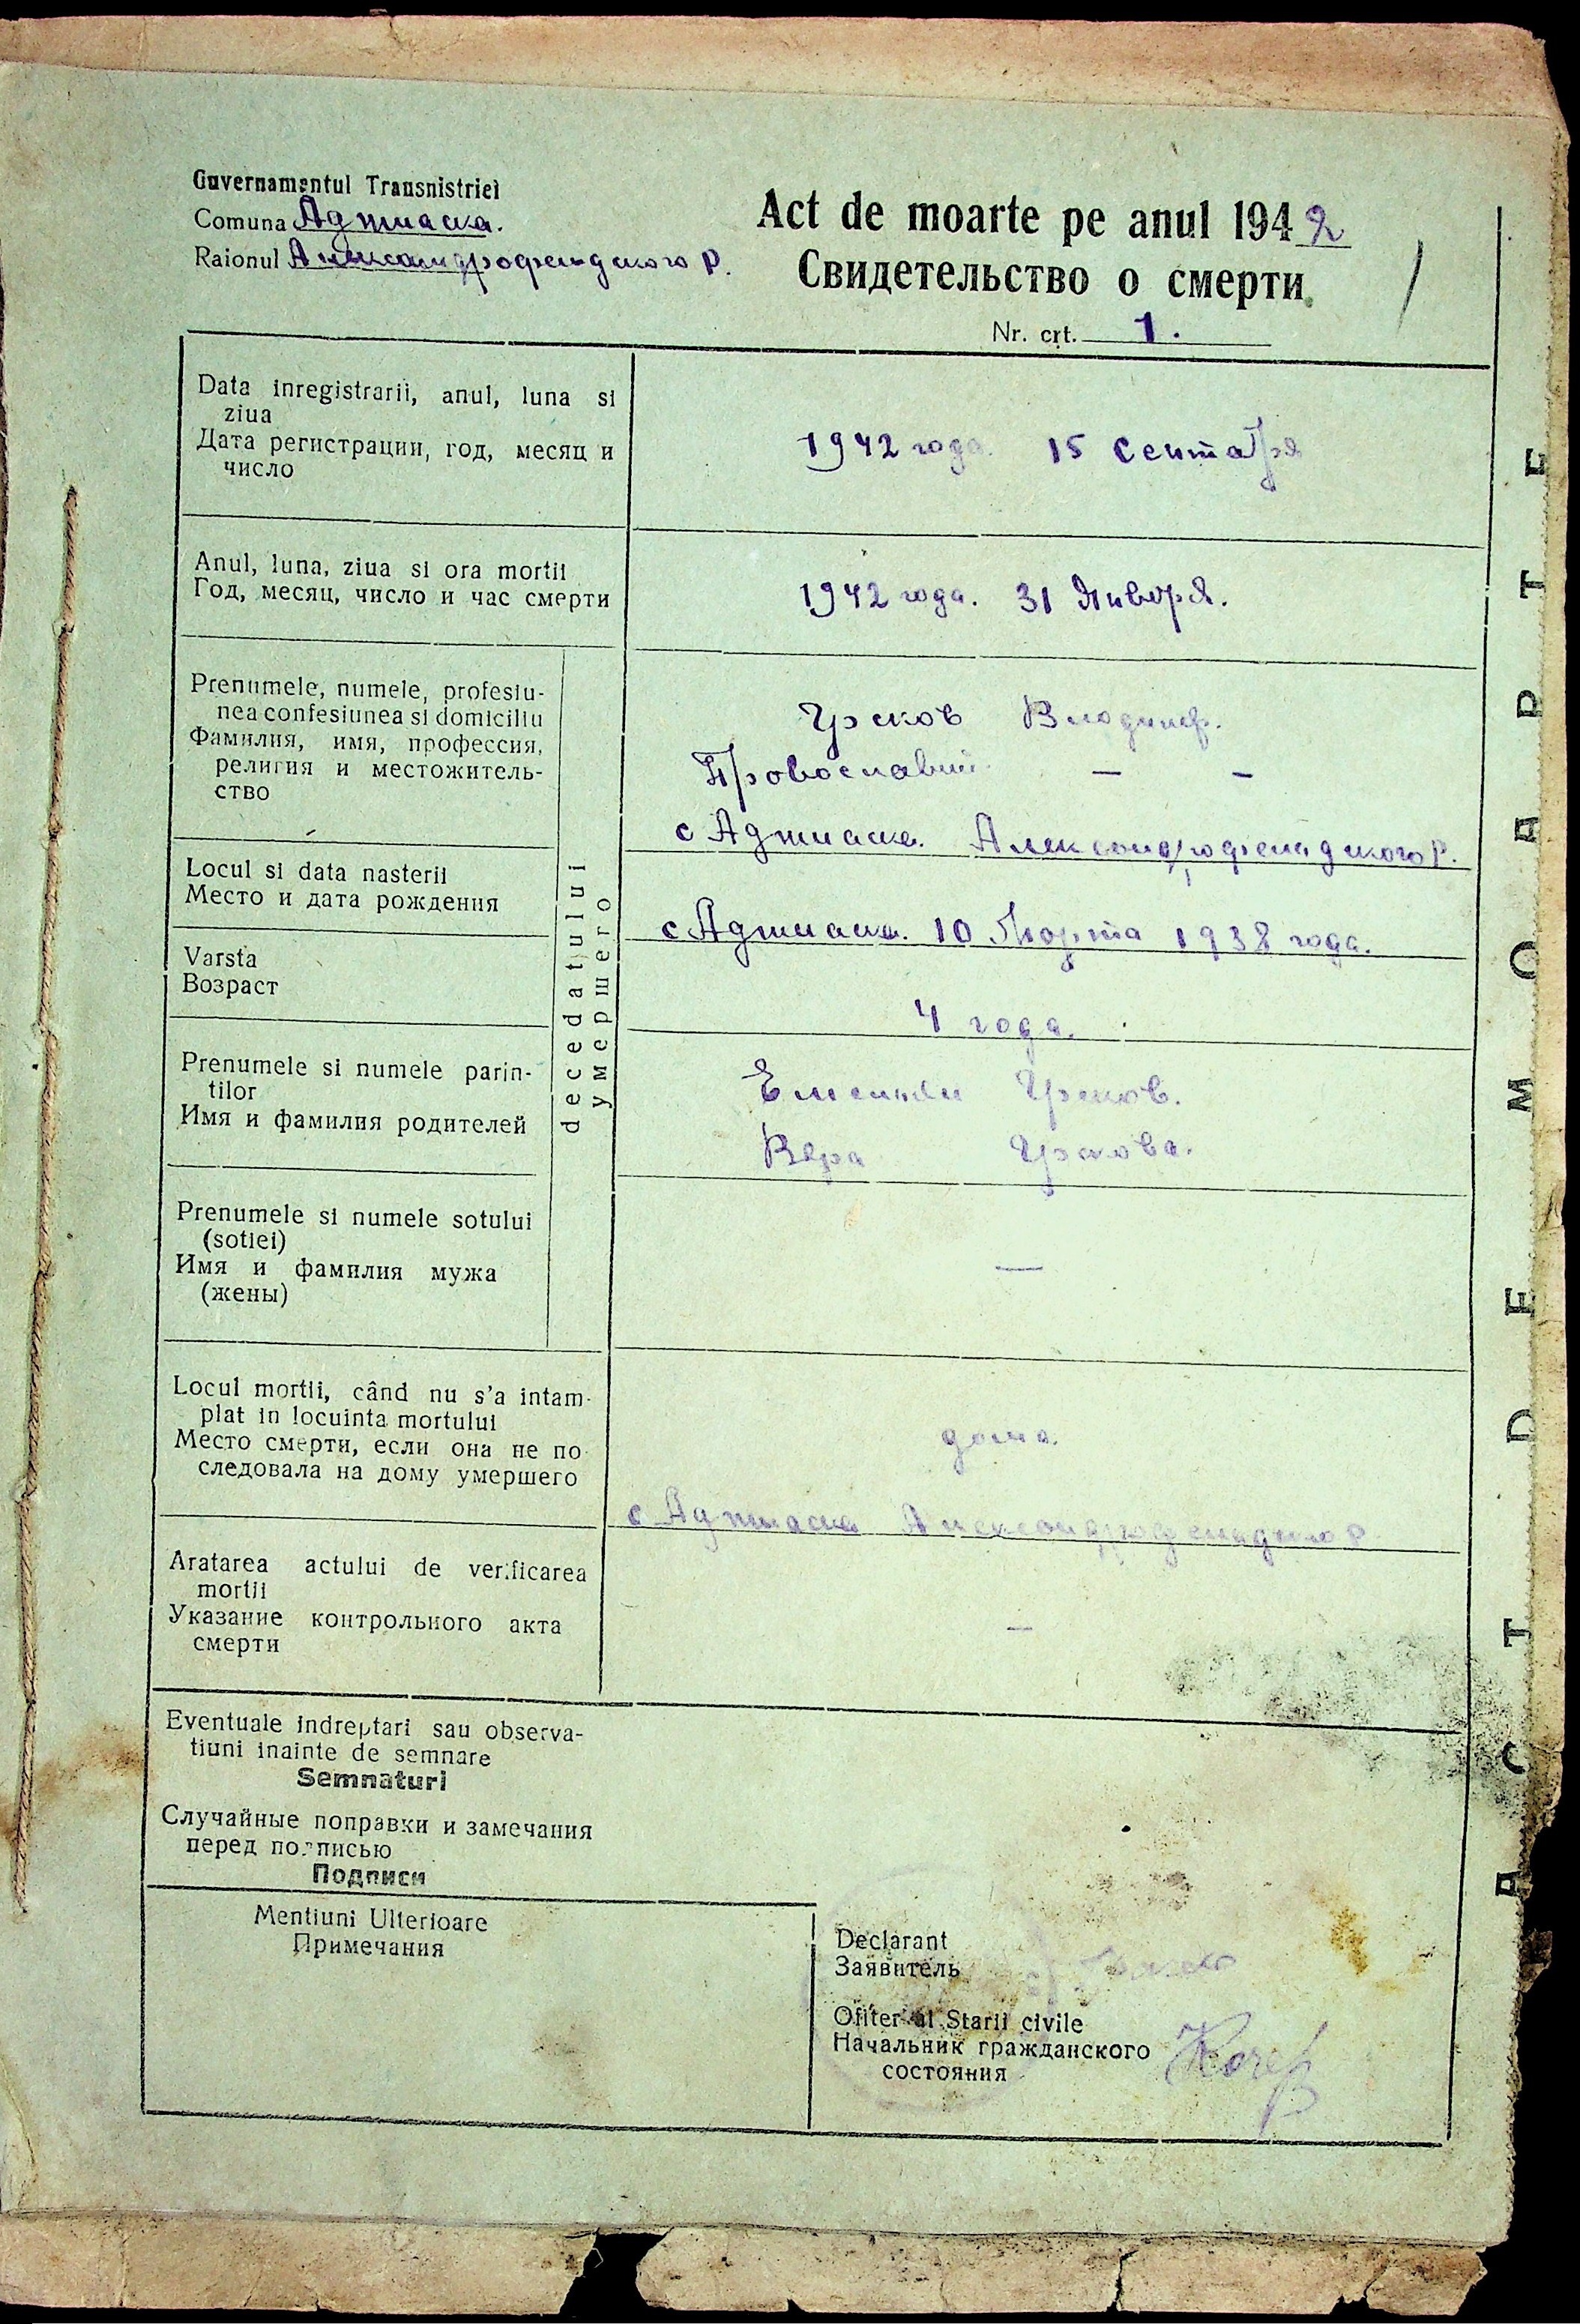 Guvernamentul Transnistriei
Comuna Аджиаска.
Raionul Александрофельдского р.
Act de moarte pe anul 1942
Свидетельство о смерти
Nr. crt. 1.
Data inregistrarii, anul, luna si
ziua
Дата регистрации, год, месяц и
число
1942 года. 15 Сентября
Anul, luna, ziua si ora mortii
Год, месяц, число и час смерти
1942 года. 31 Января.
Prenumele, numele, profesiu-
nea confesiunea si domiciliu
Фамилия, имя, профессия,
религия и местожитель-
ство
Урсков Владимер.
Провославный — —
с Аджиаска. Александрофельдского р.
decedatului
умершего
Locul si data nasterii
Место и дата рождения
с Аджиаска. 10 Марта 1938 года.
Varsta
Возраст
4 года.
Prenumele si numele parin-
tilor
Имя и фамилия родителей
Урсков.
Вера Урскова.
Prenumele si numele sotului
(sotiei)
Имя и фамилия мужа
(жены)
—
Locul mortii, când nu s'a intam-
plat in locuinta mortului
Место смерти, если она не по
следовала на дому умершего
дома.
с Аджиаска
Aratarea actului de verificarea
mortii
Указание контрольного акта
смерти
—
Eventuale indreptari sau observa-
tiuni inainte de semnare
Semnaturi
Случайные поправки и замечания
перед подписью
Подписи
Mentiuni Ulterioare
Примечания
Declarant
Заявитель
Ofiter al Starii civile
Начальник гражданского
состояния
ACT DE MOARTE